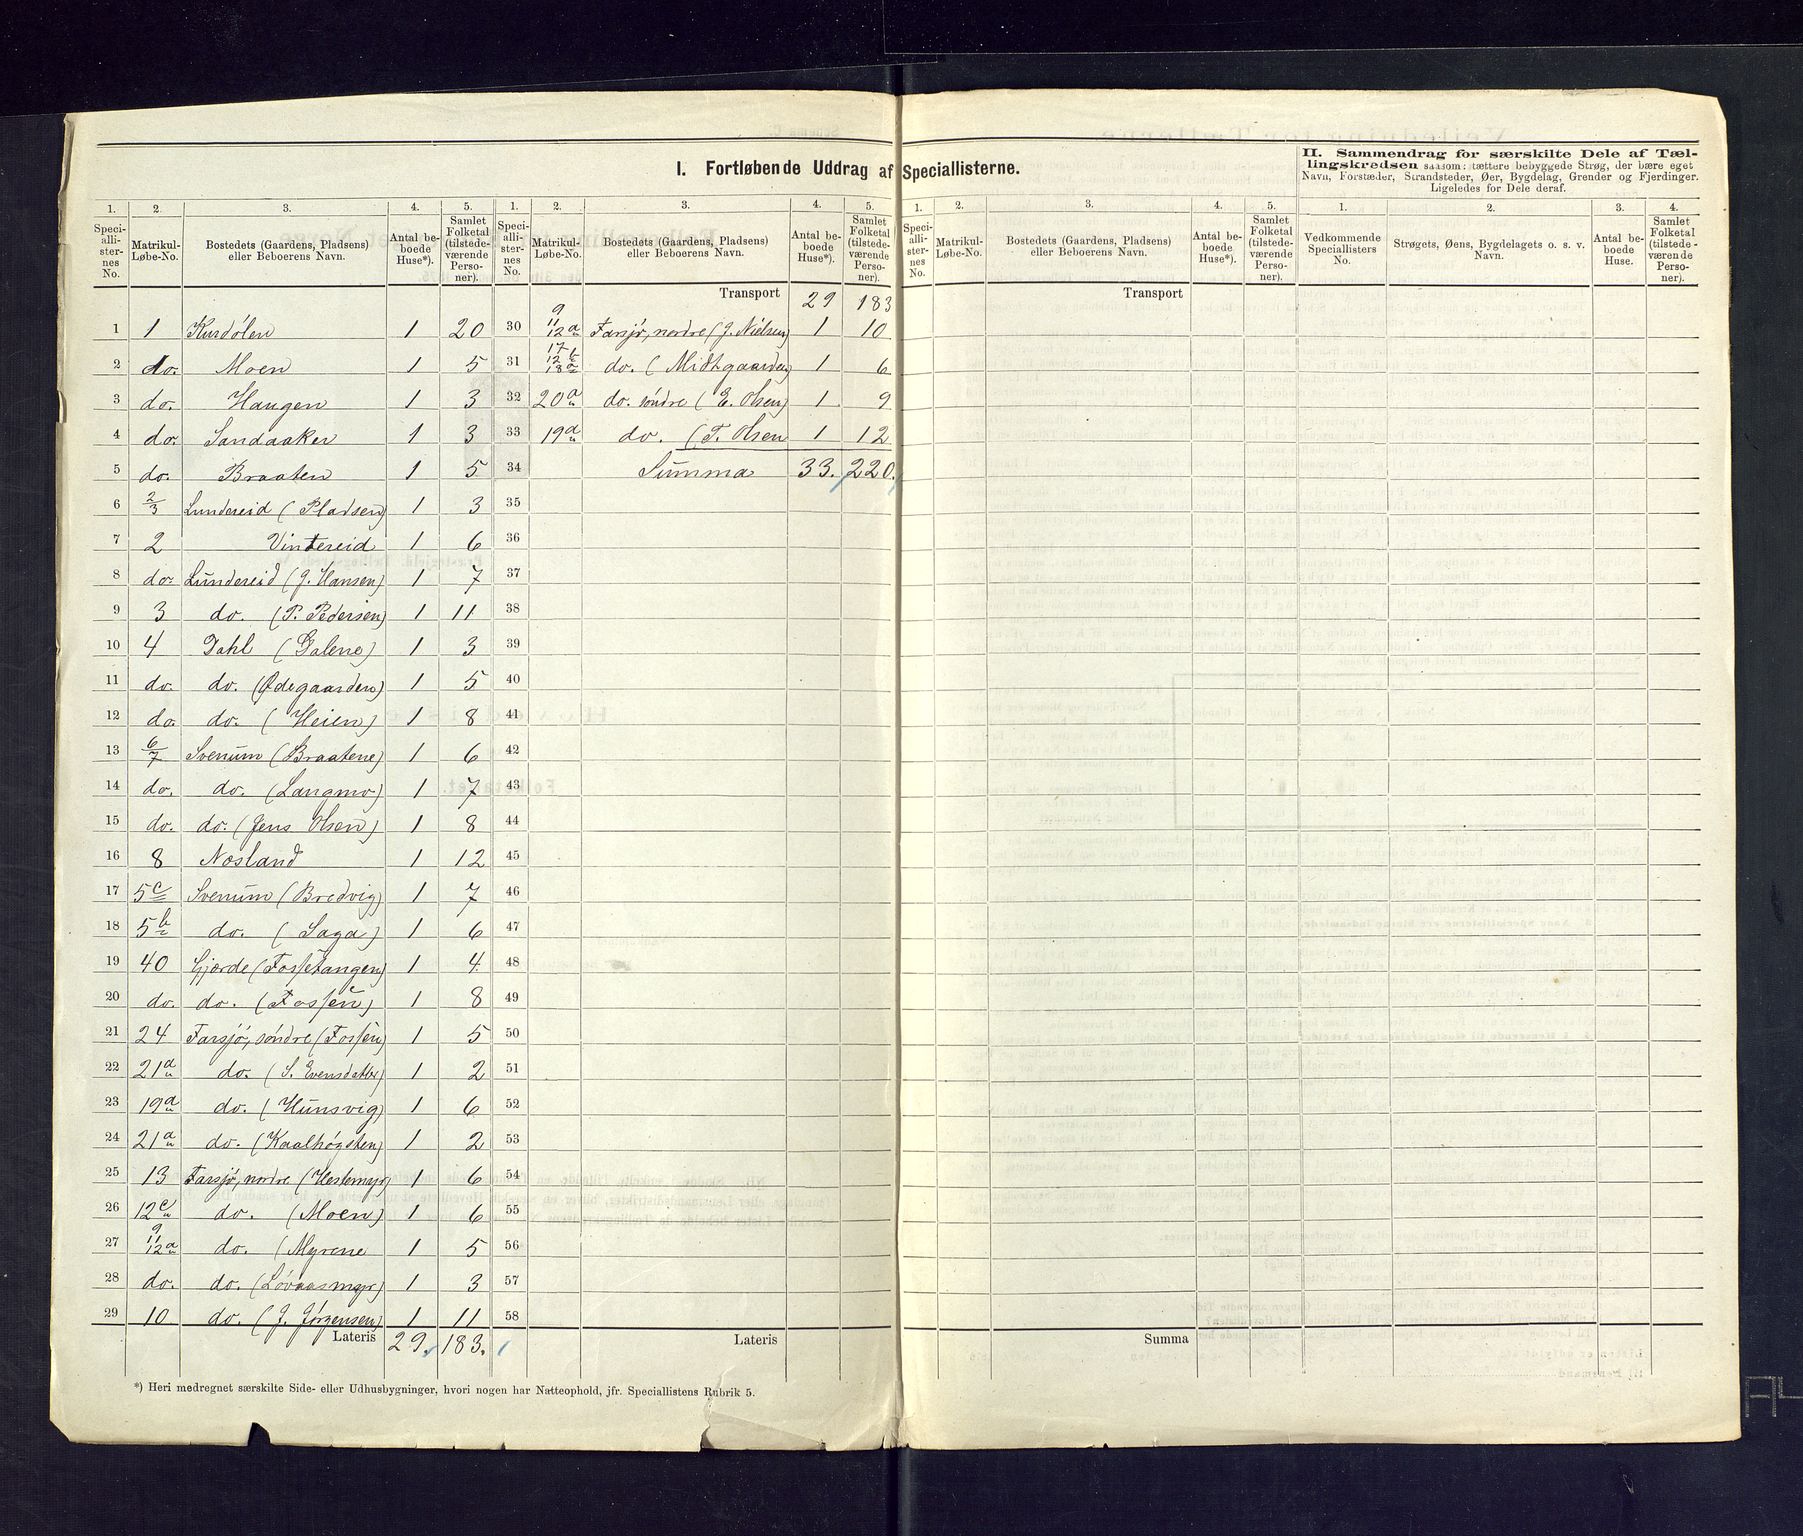 I. Fortløbende Uddrag af Speciallisterne.
1. 2. 3. 4. 5.
Speciallisternes No. Matrikul-Løbe-No. Bostedets (Gaardens, Pladsens) eller Beboerens Navn. Antal beboede Huse*). Samlet Folketal (tilstedeværende Personer).
1 1 Kurdølen 1 20
2 do. Moen 1 5
3 do. Haugen 1 3
4 do. Sandaaker 1 3
5 do. Braaten 1 5
6 2/3 Lundereid (Pladsen) 1 3
7 2 Vintereid 1 6
8 do. Lundereid (J. Hansen) 1 7
9 3 do. (P. Pedersen) 1 11
10 4 Dahl (Galene) 1 3
11 do. do. (Ødegaarden) 1 5
12 do. do. (Heien) 1 8
13 6/7 Svenum (Braatene) 1 6
14 do. do. (Langmo) 1 7
15 do. do. (Jens Olsen) 1 8
16 8 Næsland 1 12
17 5c Svenum (Bredvig) 1 7
18 5b do. (Saga) 1 6
19 40 Gjærde (Fossetangen) 1 4
20 do. do. (Fossen) 1 8
21 24 Farsjø, søndre (Fossen) 1 5
22 21a do. (S. Evensdatter) 1 2
23 19a do. (Hunsvig) 1 6
24 21a do. (Kaalhøgsten) 1 2
25 13 Farsjø, nordre (Hestemyr) 1 6
26 12c do. (Moen) 1 6
27 9 11 12a do. (Myrene 1 5
28 do. do. (Lövaasmyr) 1 3
29 10 do. (J. Jørgensen) 1 11
Lateris 29. 183.
*) Heri medregnet særskilte Side- eller Udhusbygninger, hvori nogen har Natteophold, jfr. Speciallistens Rubrik 5.
1. 2. 3. 4. 5.
Speciallisternes No. Matrikul-Løbe-No. Bostedets (Gaardens, Pladsens) eller Beboerens Navn. Antal beboede Huse*). Samlet Folketal (tilstedeværende Personer).
Transport 29 183
30 9 11 12a Farsjø, nordre (J. Nielsen) 1 10
31 17 12b 18a do. (Midtgaarden) 1 6
32 20a do. søndre (E. Olsen) 1 9
33 19a do. (T. Olsen 1 12
34 Summa 33. 220.
35
36
37
38
39
40
41
42
43
44
45
46
47
48
49
50
51
52
53
54
55
56
57
58
Lateris
1. 2. 3. 4. 5.
Speciallisternes No. Matrikul-Løbe-No. Bostedets (Gaardens, Pladsens) eller Beboerens Navn. Antal beboede Huse*). Samlet Folketal (tilstedeværende Personer).
Transport
Summa
II. Sammendrag for særskilte Dele af Tællingskredsen saasom: tættere bebyggede Strøg, der bære eget Navn, Forstæder, Strandsteder, Øer, Bygdelag, Grender og Fjerdinger. Ligeledes for Dele deraf.
1. 2. 3. 4.
Vedkommende Speciallisters No. Strøgets, Øens, Bygdelagets o. s. v. Navn. Antal beboede Huse. Samlet Folketal (tilstedeværende Personer).